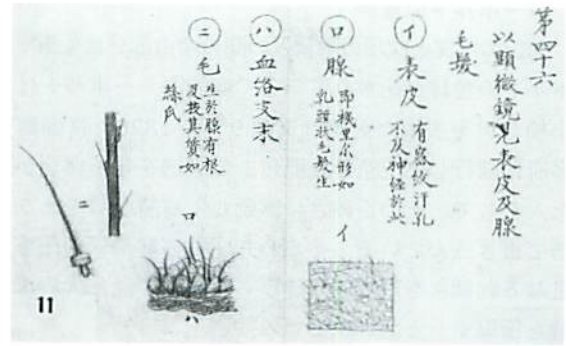 第四十六
以顯微鏡見表皮及腺
毛髮
イ 表皮
有紋汗孔
不及神経於此
ロ 腺
即機里尓形如
乳頭状毛髮生
ハ 血洛支末
ニ 毛
生於腺有根
及其質如
絲
イ
ロ
ハ
ニ
11